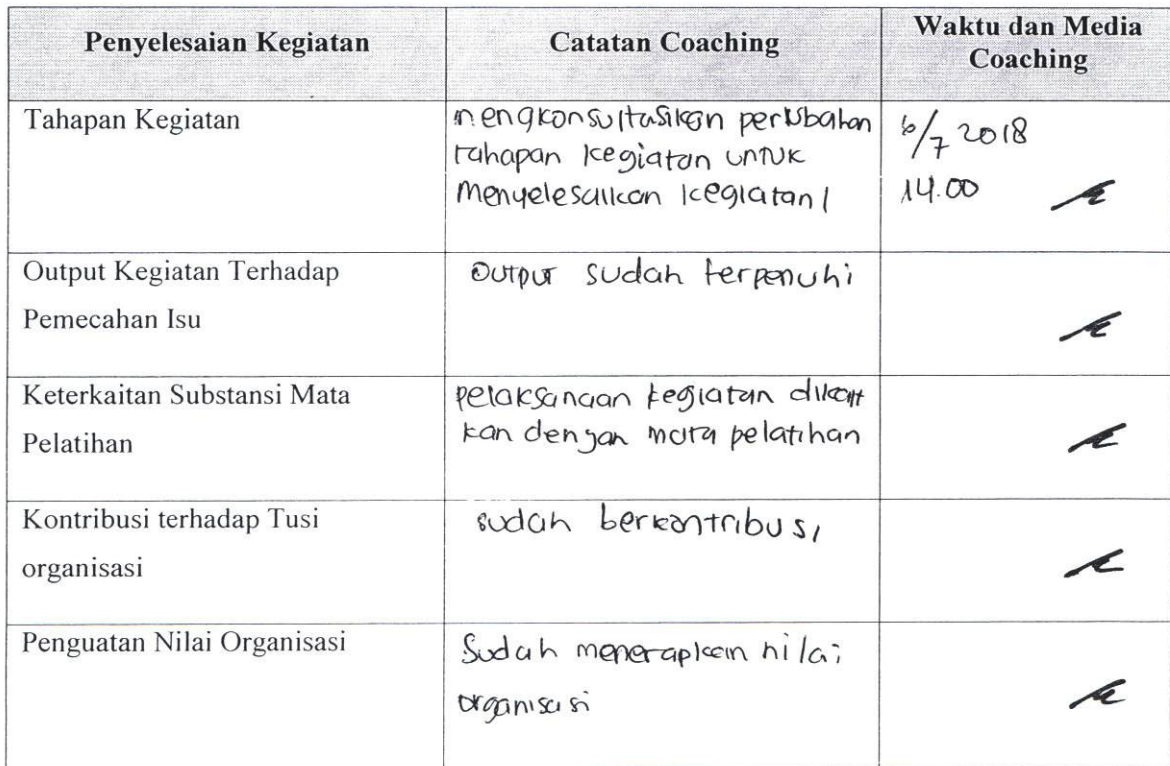 Penyelesaian Kegiatan
Catatan Coaching
Waktu dan Media
Coaching
Tahapan Kegiatan
mengkonsultasikan perubahan
tahapan kegiatan untuk
menyelesaikan kegiatan 1
6/7 2018
14.00
Output Kegiatan Terhadap
Pemecahan Isu
Output sudah terpenuhi
Keterkaitan Substansi Mata
Pelatihan
pelaksanaan kegiatan dikait
kan dengan mata pelatihan
Kontribusi terhadap Tusi
organisasi
sudah berkontribusi
Penguatan Nilai Organisasi
Sudah menerapkan nilai
organisasi